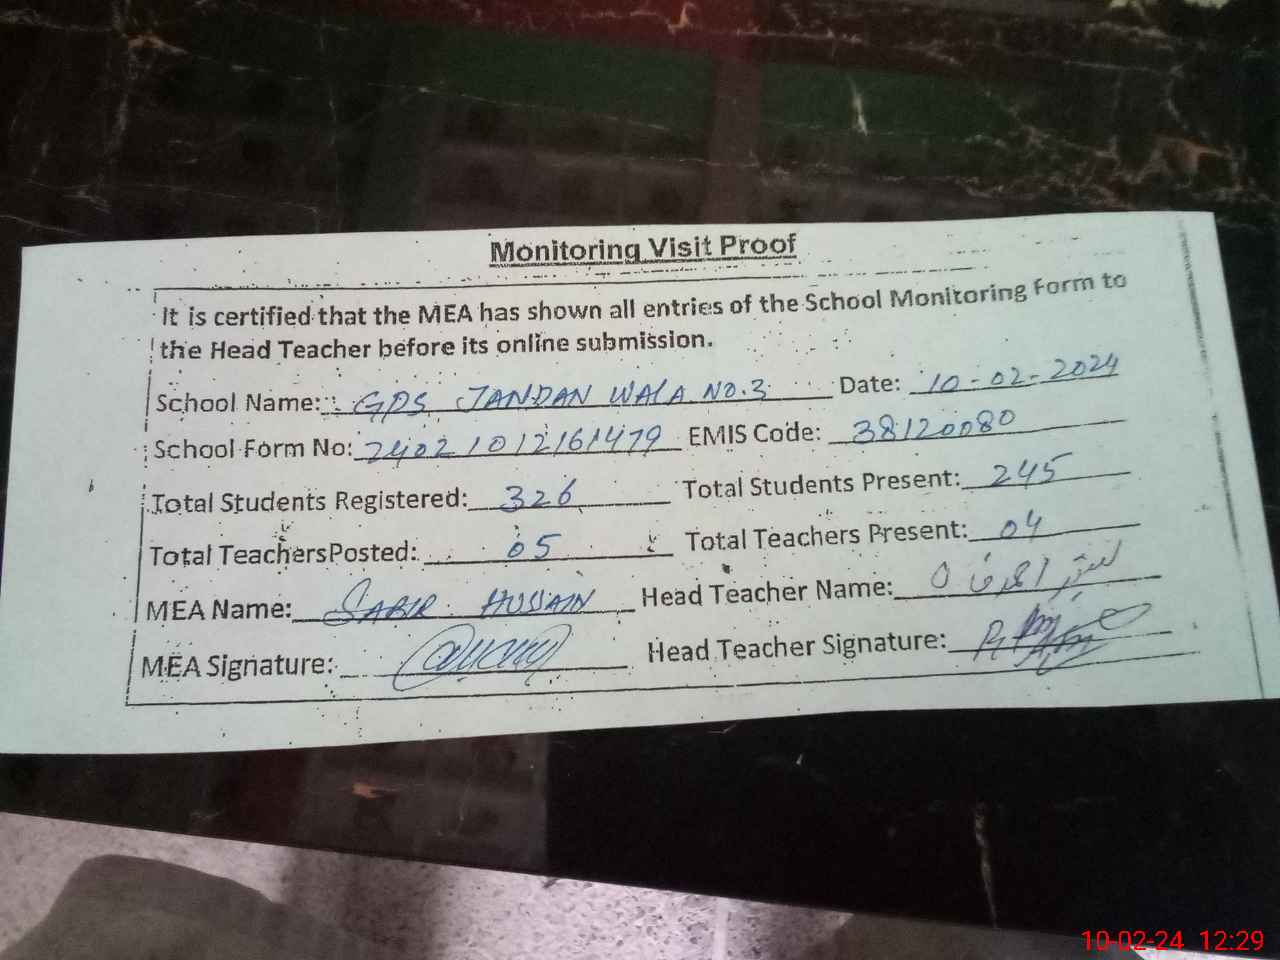 Monitoring Visit Proof
It is certified that the MEA has shown all entries of the School Monitoring Form to
the Head Teacher before its online submission.
School Name: GPS JANDAN WALA NO.3 Date: 10-02-2024
School Form No: 24021012161479 EMIS Code: 38120080
Total Students Registered: 326 Total Students Present: 245
Total Teachers Posted: 05 Total Teachers Present: 04
MEA Name: SABIR HUSSAIN Head Teacher Name:
MEA Signature: Head Teacher Signature:
10-02-24 12:29